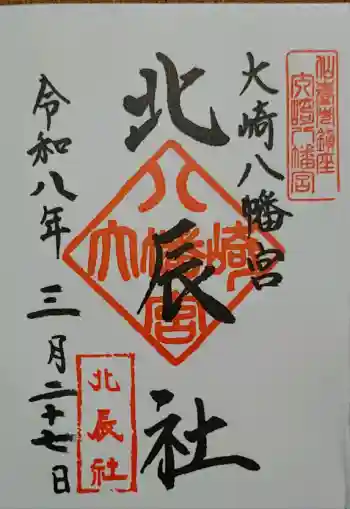 仙臺鎮座
大崎八幡宮
大崎八幡宮
北辰社
大崎八幡宮
北辰社
令和八年三月二十七日